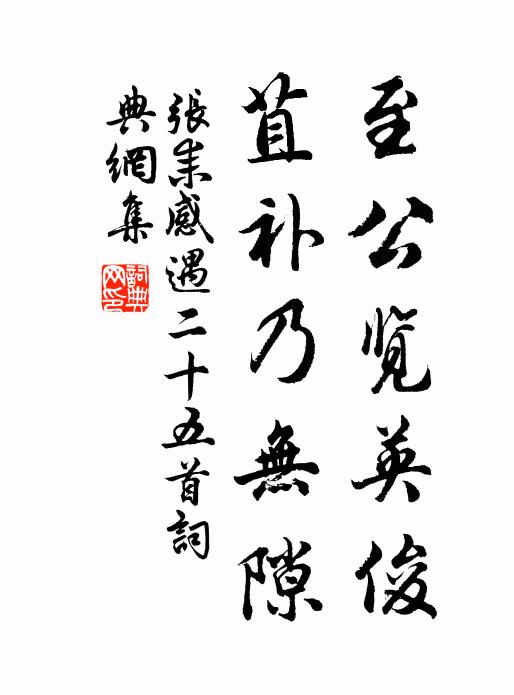 至公览英俊
苴补乃無隙
張耒感遇二十五首詞
典網集
詞典
网印